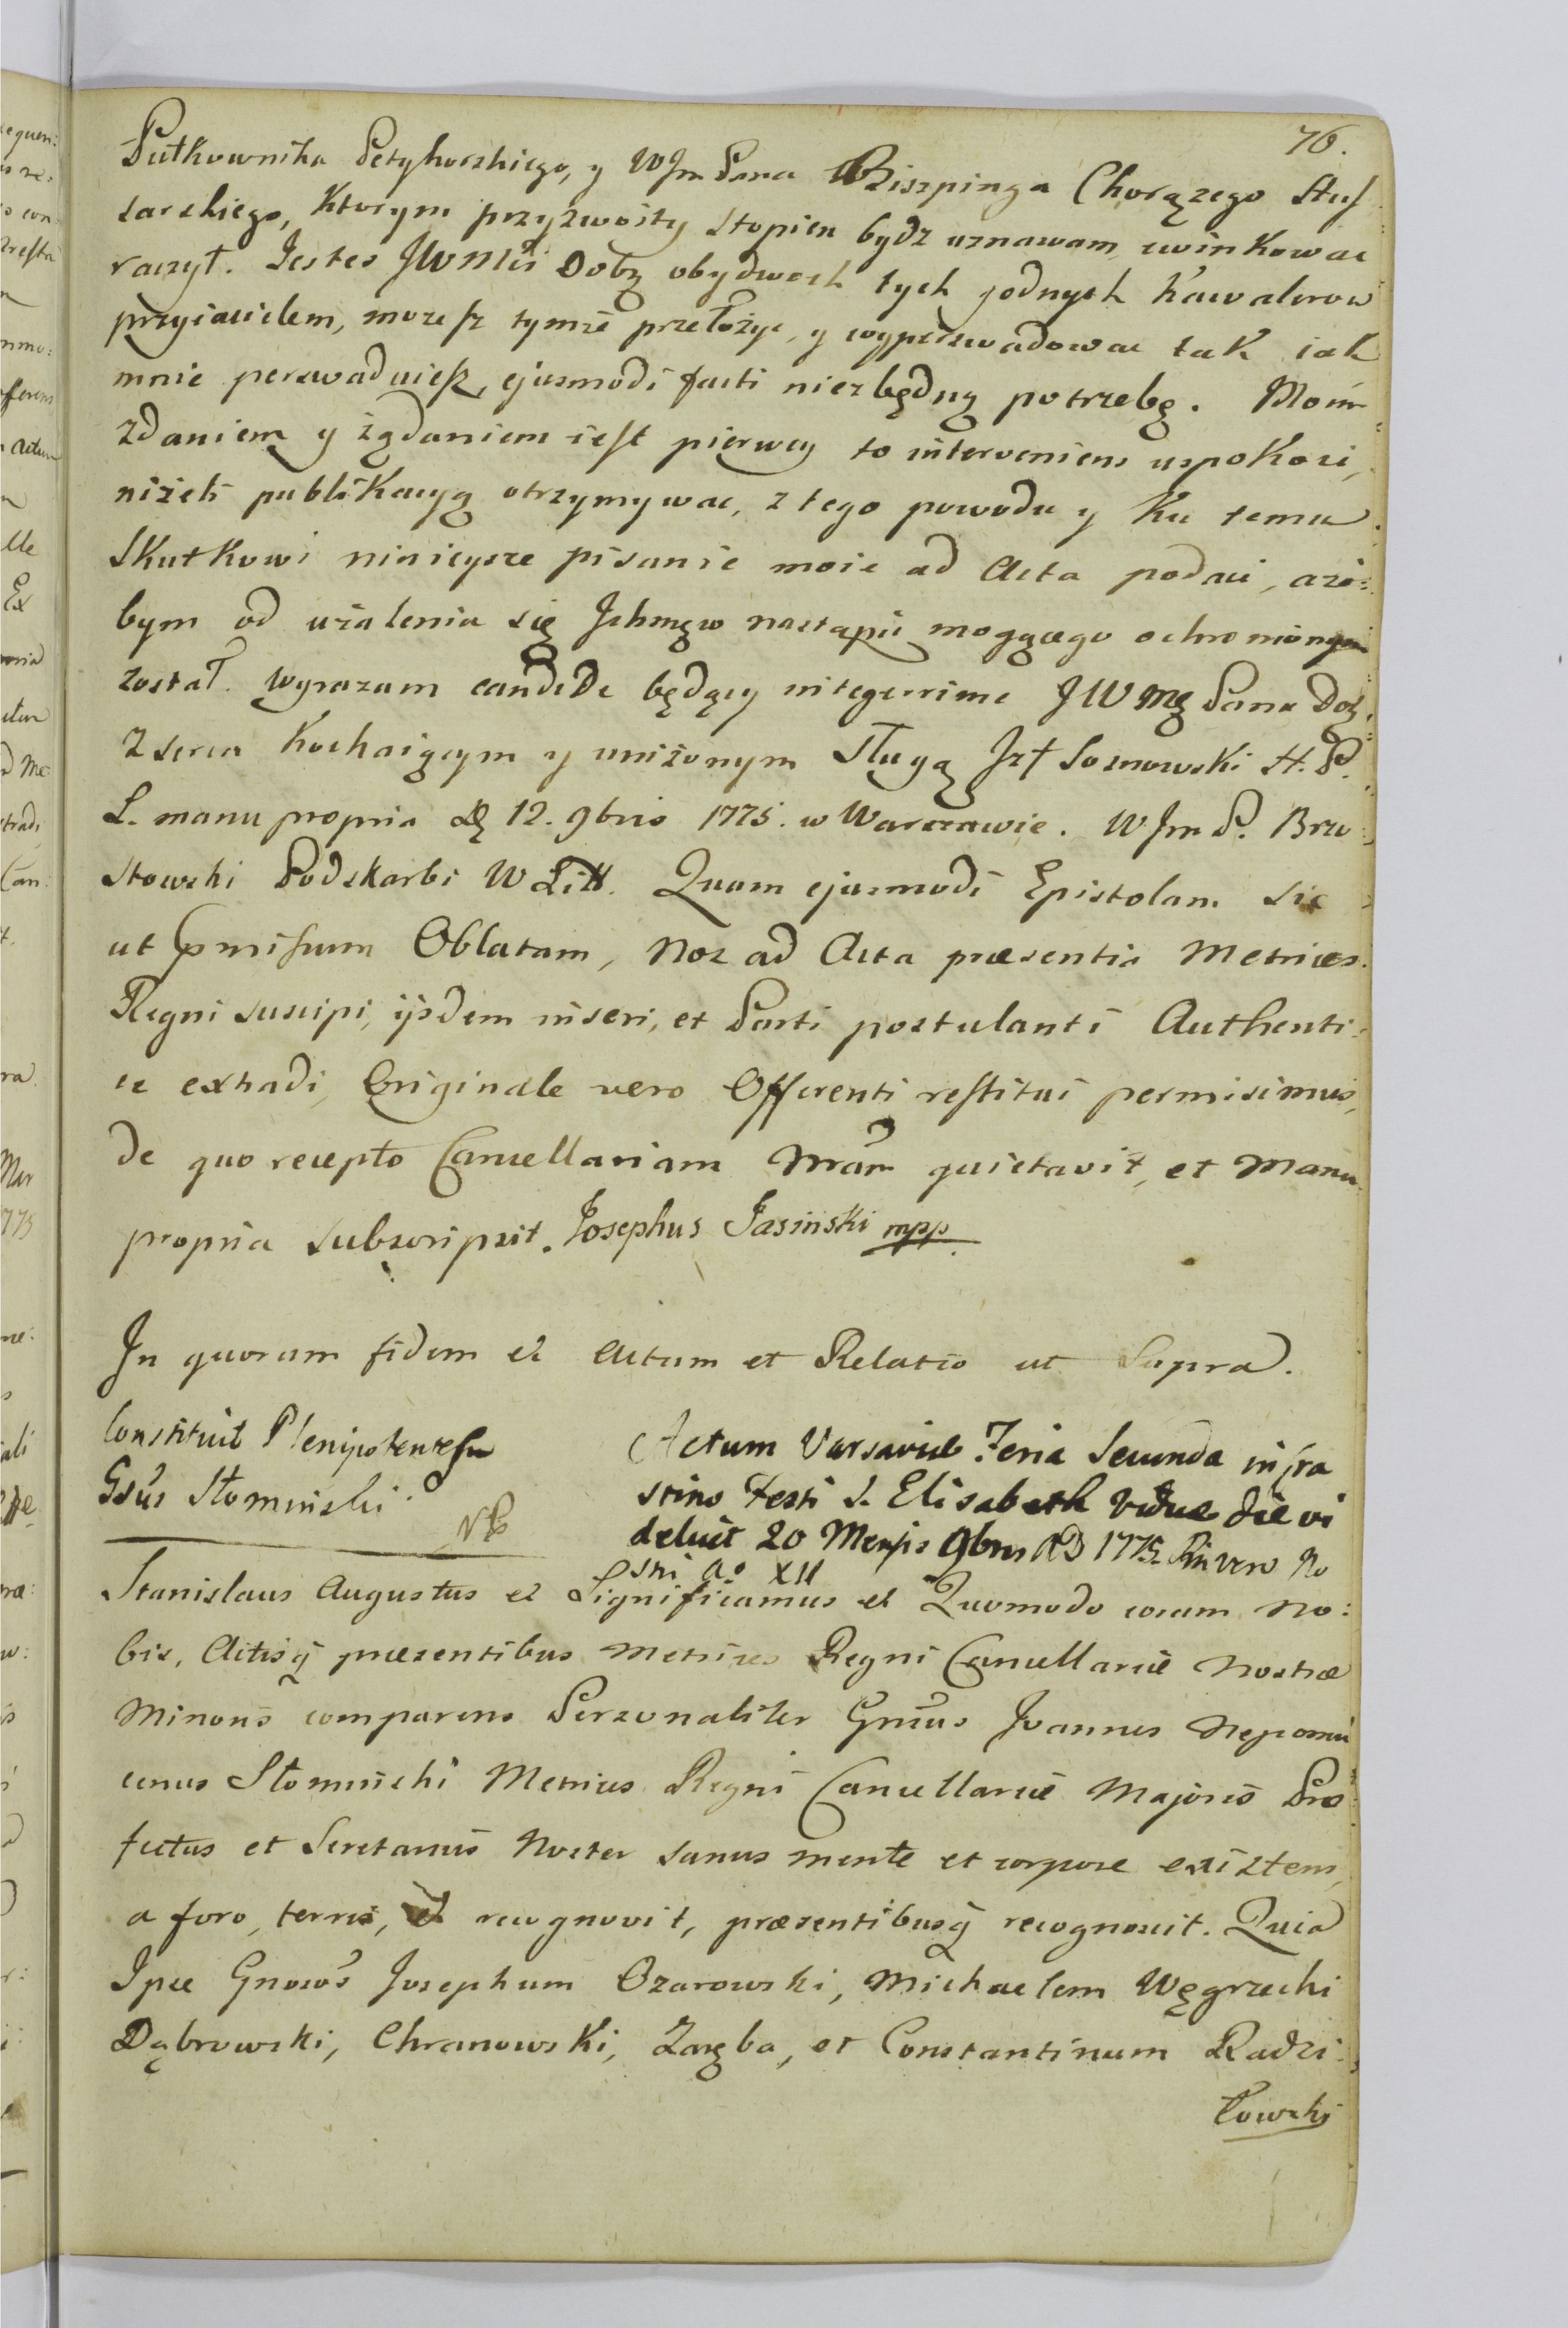 76.
Pułkownika Petyhorskiego, y WJm Pana Biszpinga Chorązego Hus
sarskiego, ktorym przyzwoity stopien bydz uznawam, uwinkowac
raczył. Jestes JWMći Dobz obydwoch tych godnych kawalerow
przyiacielem, mozesz tymże przełożyc, y wyperswadowac tak iak
mnie perswaduiesz, ejusmodi facti niezbędną potrzebę. Moim
zdaniem y żądaniem iest pierwey to interveniens uspokoić,
niżeli publikacyą otrzymywac, z tego powodu y ku temu
skutkowi ninieysze pisanie moie ad Acta podaię, aże:
bym od użalenia się Jchmęw nastąpić mogącego ochronionym
został. Wyrazam candide będący integerrime JWMę Pana Dobz
z serca kochaiącym y uniżonym Sługą Jzf Sosnowski H. P.
L. manu propria D 12. 9bris 1775. w Warszawie. WJm P. Brzo
stowski Podskarbi W Litt. Quam ejusmodi Epistolam sic
ut pmissum Oblatam, Nos ad Acta præsentia Metrices
Regni suscipi, ijsdem inseri, et Parti postulanti Authenti:
ce extradi, Originale vero Offerenti restitui permisimus,
de quo recepto Cancellariam Nram quietavit, et Manu
propria subscripsit. Josephus Jasinski mpp
In quorum fidem et Actum et Relatio ut Supra.
Constituit Plenipotentes su
Gsus Słominski.
NB
Actum Varsaviæ Feria Secunda in Cra
stino Festi S. Elisabeth Viduæ die vi
delicet 20 Mensis 9bris AD 1775. Rni vero No
stri Ao XII
Stanislaus Augustus et Significamus et Quomodo coram No:
bis, Actisq præsentibus Metrices Regni Cancellariæ Nostræ
Minoris comparens Personaliter Gnsus Joannes Nepomu
cenus Słominski Metrices Regni Cancellariæ Majoris Præ
fectus et Secretarius Noster sanus mente et corpore existens,
a foro, terris, et recognovit, præsentibusq recognoscit. Quia
Ipse Gnosos Josephum Ozarowski, Michaelem Węgrzecki
Dąbrowski, Chranowski, Zaręba, et Constantinum Radzi:
łowski